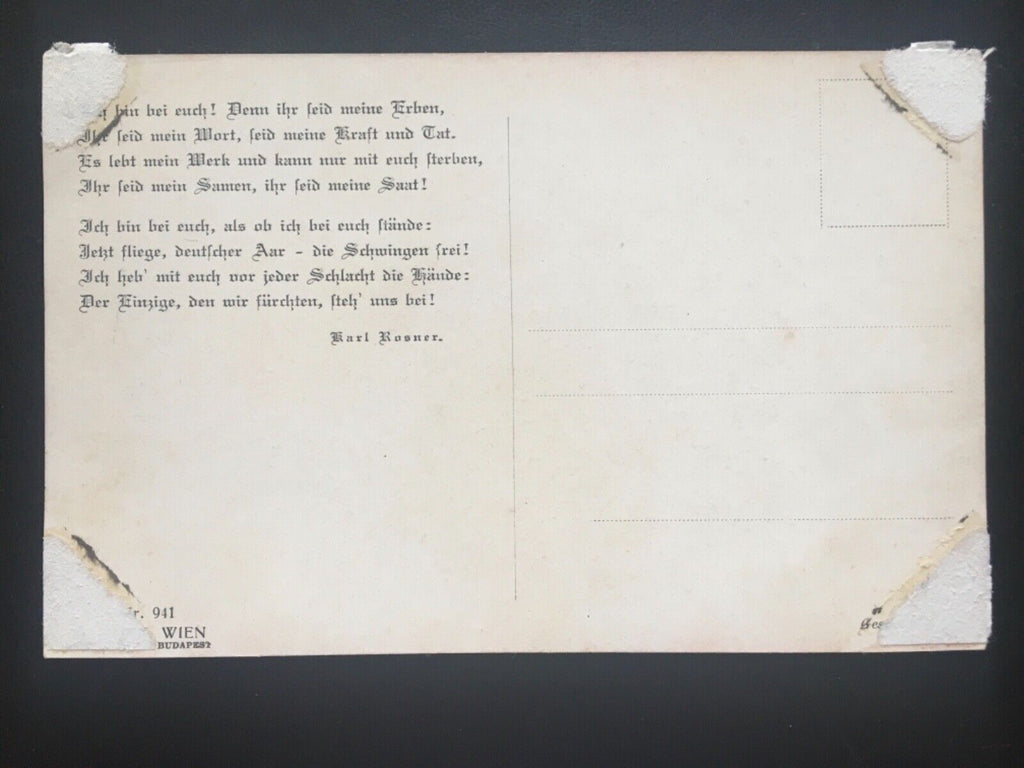 bin bei euch! Denn ihr seid meine Erben,
Ihr seid mein Wort, seid meine Kraft und Tat.
Es lebt mein Werk und kann nur mit euch sterben,
Ihr seid mein Samen, ihr seid meine Saat!
Ich bin bei euch, als ob ich bei euch stände:
Jetzt fliege, deutscher Aar - die Schwingen frei!
Ich heb' mit euch vor jeder Schlacht die Hände:
Der Einzige, den wir fürchten, steh' uns bei!
Karl Rosner.
941
WIEN
BUDAPEST